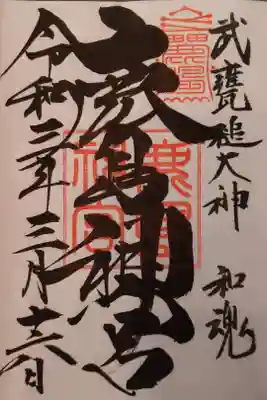 武甕槌大神 和魂
鹿島神宮
令和二年三月十六日
鹿島
神宮